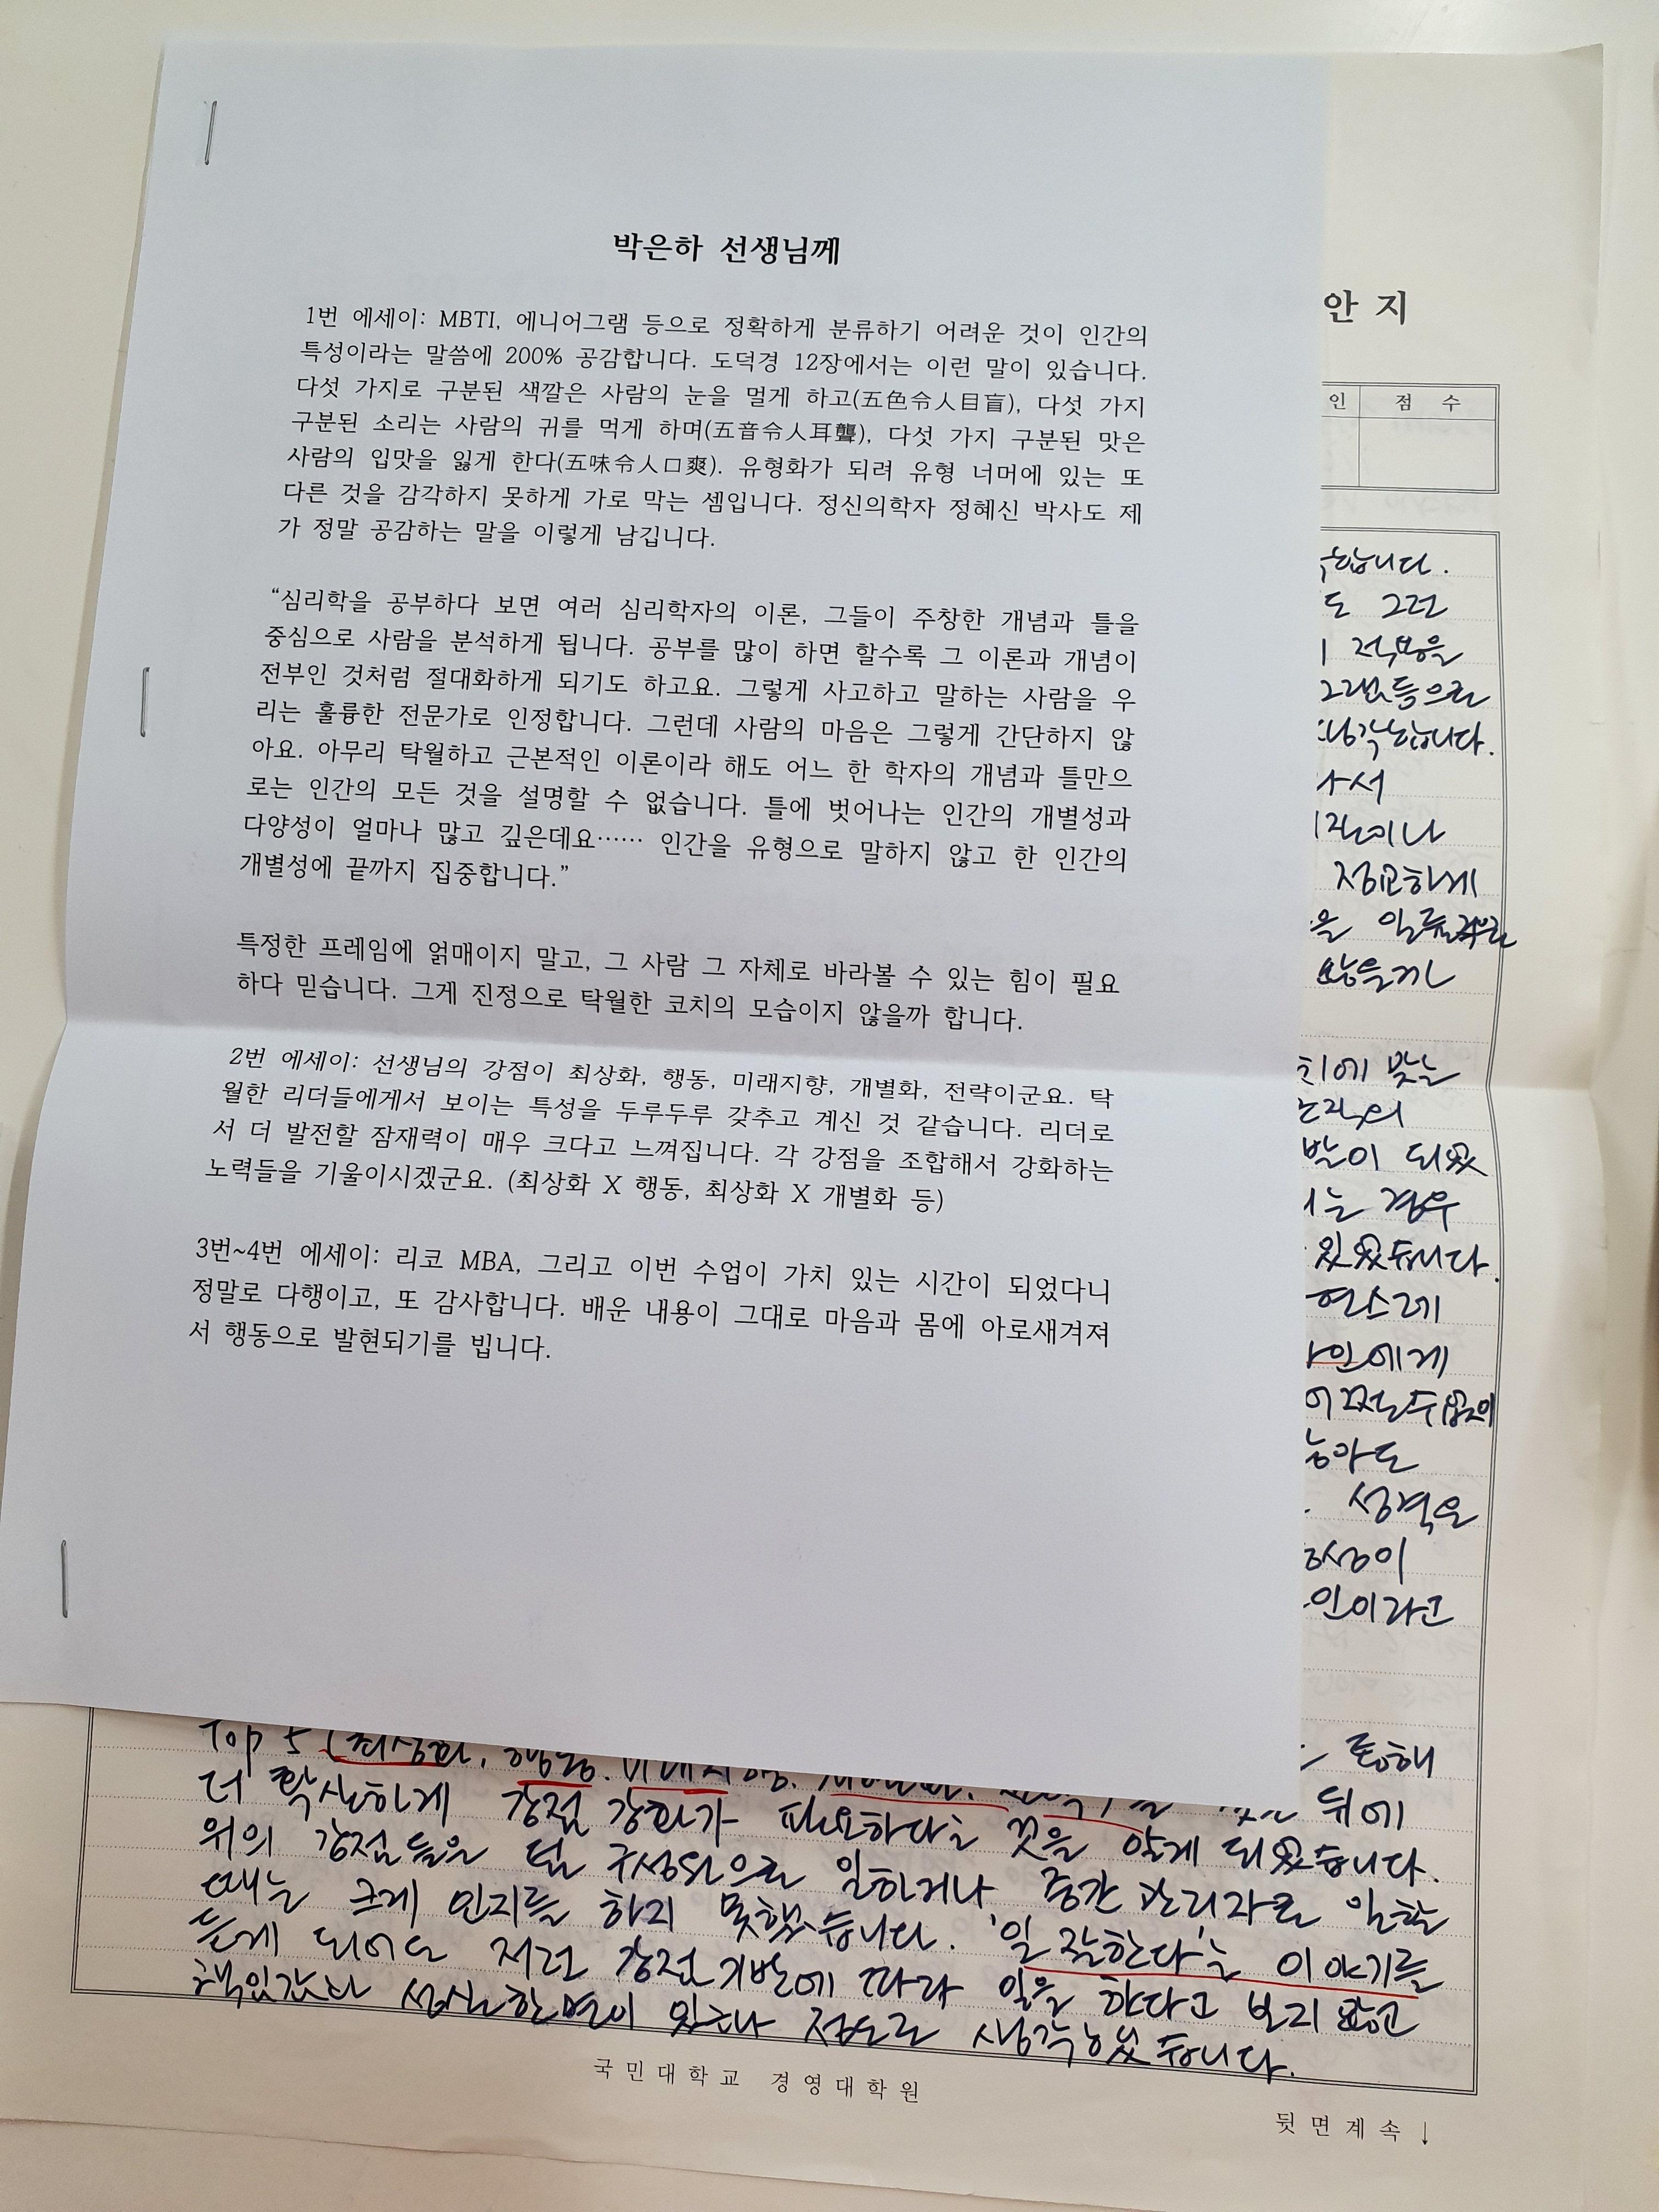 박은하 선생님께
1번 에세이: MBTI, 에니어그램 등으로 정확하게 분류하기 어려운 것이 인간의
특성이라는 말씀에 200% 공감합니다. 도덕경 12장에서는 이런 말이 있습니다.
다섯 가지로 구분된 색깔은 사람의 눈을 멀게 하고(五色令人目盲), 다섯 가지
구분된 소리는 사람의 귀를 먹게 하며(五音令人耳聾), 다섯 가지 구분된 맛은
사람의 입맛을 잃게 한다(五味令人口爽). 유형화가 되려 유형 너머에 있는 또
다른 것을 감각하지 못하게 가로 막는 셈입니다. 정신의학자 정혜신 박사도 제
가 정말 공감하는 말을 이렇게 남깁니다.
“심리학을 공부하다 보면 여러 심리학자의 이론, 그들이 주창한 개념과 틀을
중심으로 사람을 분석하게 됩니다. 공부를 많이 하면 할수록 그 이론과 개념이
전부인 것처럼 절대화하게 되기도 하고요. 그렇게 사고하고 말하는 사람을 우
리는 훌륭한 전문가로 인정합니다. 그런데 사람의 마음은 그렇게 간단하지 않
아요. 아무리 탁월하고 근본적인 이론이라 해도 어느 한 학자의 개념과 틀만으
로는 인간의 모든 것을 설명할 수 없습니다. 틀에 벗어나는 인간의 개별성과
다양성이 얼마나 많고 깊은데요…… 인간을 유형으로 말하지 않고 한 인간의
개별성에 끝까지 집중합니다.”
특정한 프레임에 얽매이지 말고, 그 사람 그 자체로 바라볼 수 있는 힘이 필요
하다 믿습니다. 그게 진정으로 탁월한 코치의 모습이지 않을까 합니다.
2번 에세이: 선생님의 강점이 최상화, 행동, 미래지향, 개별화, 전략이군요. 탁
월한 리더들에게서 보이는 특성을 두루두루 갖추고 계신 것 같습니다. 리더로
서 더 발전할 잠재력이 매우 크다고 느껴집니다. 각 강점을 조합해서 강화하는
노력들을 기울이시겠군요. (최상화 X 행동, 최상화 X 개별화 등)
3번~4번 에세이: 리코 MBA, 그리고 이번 수업이 가치 있는 시간이 되었다니
정말로 다행이고, 또 감사합니다. 배운 내용이 그대로 마음과 몸에 아로새겨져
서 행동으로 발현되기를 빕니다.
안 지
인 점 수
합니다.
도 그런
나서
정교하게
않을까
치에 맞는
발이 되었
는 경우
있었습니다.
에게
성격은
이라고
Top 5 (최상화, 행동, 통해
더 확실하게 강점 강화가 필요하다는 것을 알게 되었습니다. 뒤에
위의 강점들을 팀 구성원으로 일하거나 중간 관리자로 일할
때는 크게 인지를 하지 못했습니다. '일 잘한다'는 이야기를
듣게 되어도 저런 강점 기반에 따라 일을 하다고 보지 않고
책임감이나 성실한 면이 있구나 정도로 생각했습니다.
국민대학교 경영대학원
뒷면계속↓